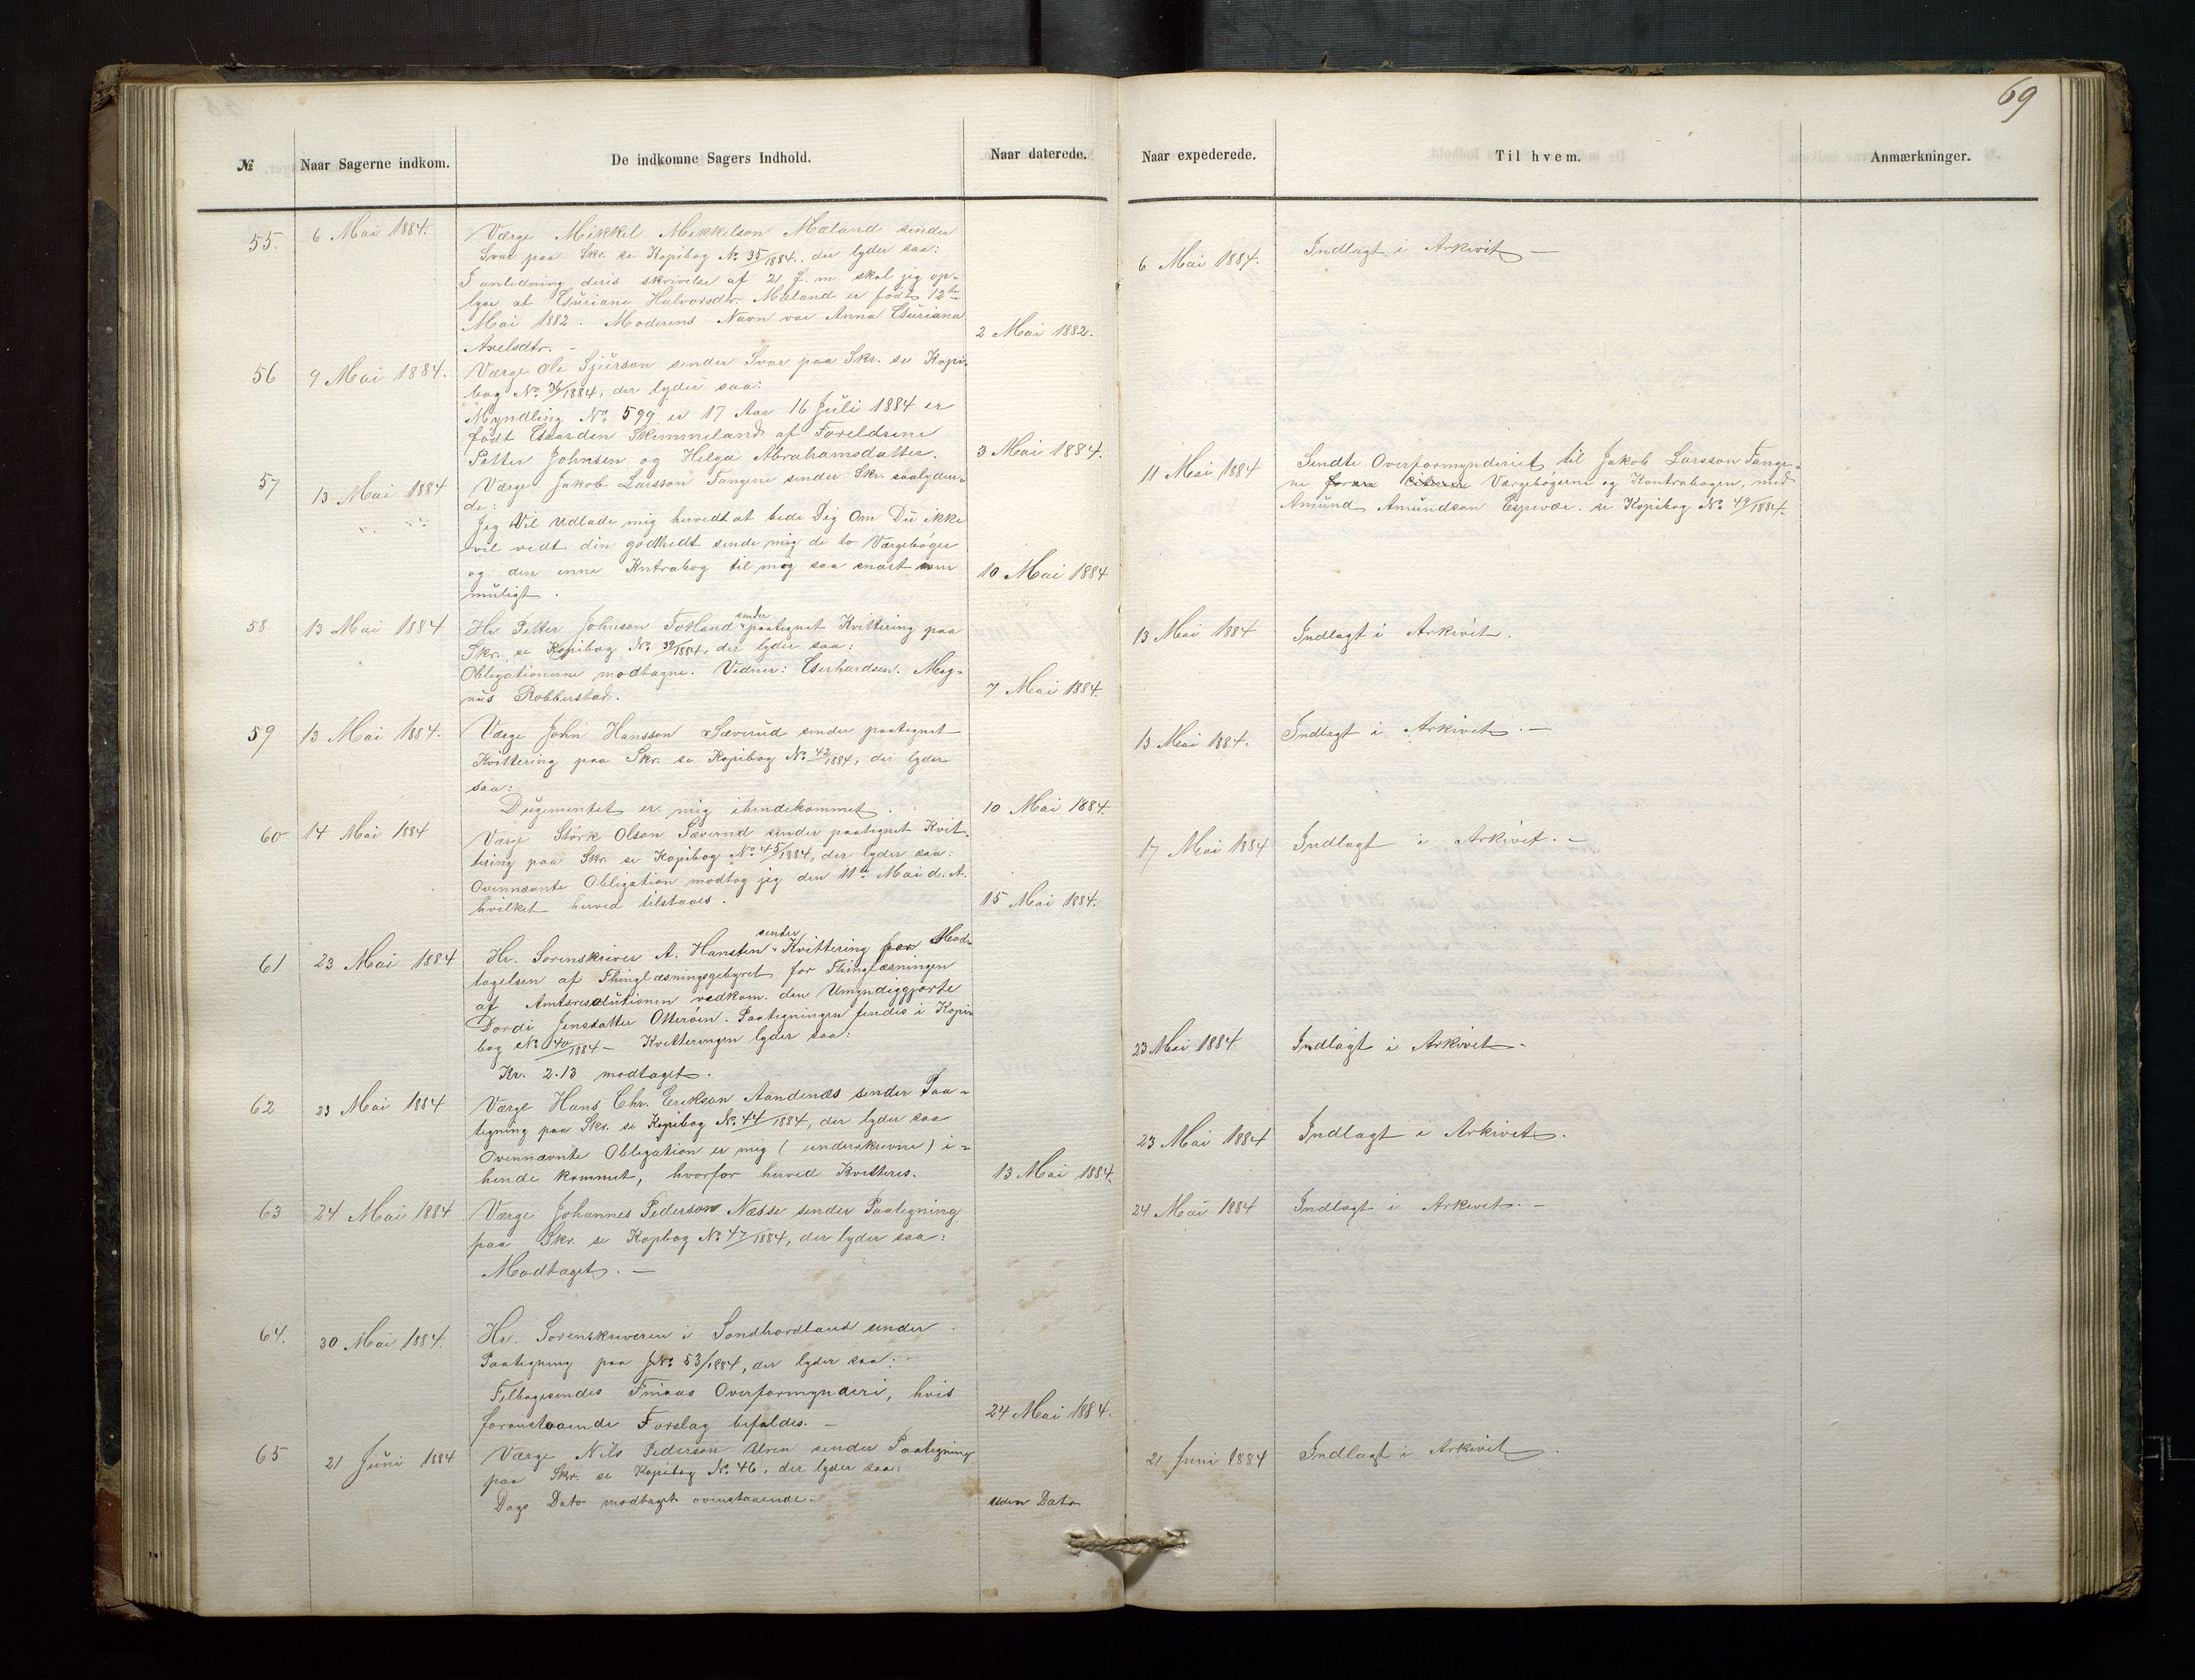 69
№ Naar Sagerne indkom. De indkomne Sagers Indhold. Naar daterede. Naar expederede. Til hvem. Anmærkninger.
55. 6 Mai 1884. Værge Mikkel Mikkelson Mæland sender
Svar paa Skr. se Kopibog No 35/1884., der lyder saa:
I anledning deris skrivelse af 21 f. m. skal jeg op-
lyse at Guriane Halvorsdtr. Mæland er født 12te
Mai 1882. Moderens Navn var Anna Guriana 2 Mai 1882.
Axelsdtr. –
6 Mai 1884. Indlagt i Arkivet –
56 9 Mai 1884. Værge Ole Sjurson sender Svar paa Skr. se Kopi-
bog No. 36/1884, der lyder saa:
Myndling No 599 er 17 Aar 16 Juli 1884 er
født Gaarden Skimmeland af Foreldrene
Petter Johnsen og Helga Abrahamsdatter. 3 Mai 1884.
57 13 Mai 1884 Værge Jakob Larsson Tangene sender Skr. saalyden-
de:
Jeg Vil Udlade mig hervedt at bede Dig Om Du ikke
vil vedt din godhedt sende mig de to Værgebøger
og den enne Kntrabog til mig saa snart som 10 Mai 1884
muligt.
11 Mai 1884 Sendte Overformynderiet til Jakob Larsson Tange-
ne Værgebøgerne og Kontrabogen, med
Amund Amundson Espevær. se Kopibog No 49/1884.
58 13 Mai 1884 Hr Petter Johnson Totland sender paategnet Kvittering paa
Skr. se Kopibog No. 39/1884, der lyder saa:
Obligationerne modtagne. Vidner: Gerhardsen. Mag-
nus Robberstad. 7 Mai 1884.
13 Mai 1884 Indlagt i Arkivet.
59 13 Mai 1884. Værge John Hansson Sæverud sender paategnet
Kvittering paa Skr. se Kopibog No. 42/1884, der lyder
saa:
Dugementet er mig ihendekommet. 10 Mai 1884.
13 Mai 1884. Indlagt i Arkivet. –
60 14 Mai 1884 Værge Størk Olson Sæverud sender paategnet Kvit-
tering paa Skr. se Kopibog No. 45/1884, der lyder saa:
Ovennævnte Obligation modtog jeg den 11te Mai d. A.
hvilket herved tilstaaes. 15 Mai 1884.
17 Mai 1884 Indlagt i Arkivet. –
61 23 Mai 1884 Hr. Sorenskriver A. Hansten sender Kvittering for Mod-
tagelsen af Thinglæsningsgebyret for Thinglæsningen
af Amtsresolutionen vedkom. den Umyndiggjorte
Dordi Jensdatter Otterøen. Paategningen findes i Kopi-
bog No 40/1884 – Kvitteringen lyder saa:
Kr. 2.13 modtaget.
23 Mai 1884 Indlagt i Arkivet –
62 23 Mai 1884 Værge Hans Chr. Erikson Aandenæs sender Paa-
tegning paa Skr. se Kopibog No. 44/1884, der lyder saa
Ovennævnte Obligation er mig (underskrevne) i-
hende kommet, hvorfor herved Kvitteres. 13 Mai 1884.
23 Mai 1884 Indlagt i Arkivet.
63 24 Mai 1884 Værge Johannes Pederson Næsse sender Paategning
paa Skr. se Kopbog No. 47/1884, der lyder saa:
Modtaget. –
24 Mai 1884 Indlagt i Arkivet. –
64. 30 Mai 1884. Hr. Sorenskriveren i Sondhordland sender
Paategning paa JNo. 53/1884, der lyder saa: –
Tilbagesendes Finaas Overformynderi, hvis
foranstaaende Forslag bifaldes. – 24 Mai 1884.
65 21 Juni 1884 Værge Nils Pederson Uren sender Paategning
paa Skr. se Kopibog No. 46, der lyder saa:
Dags Dato modtaget ovenstaaende. uden Dato
21 Juni 1884 Indlagt i Arkivet.